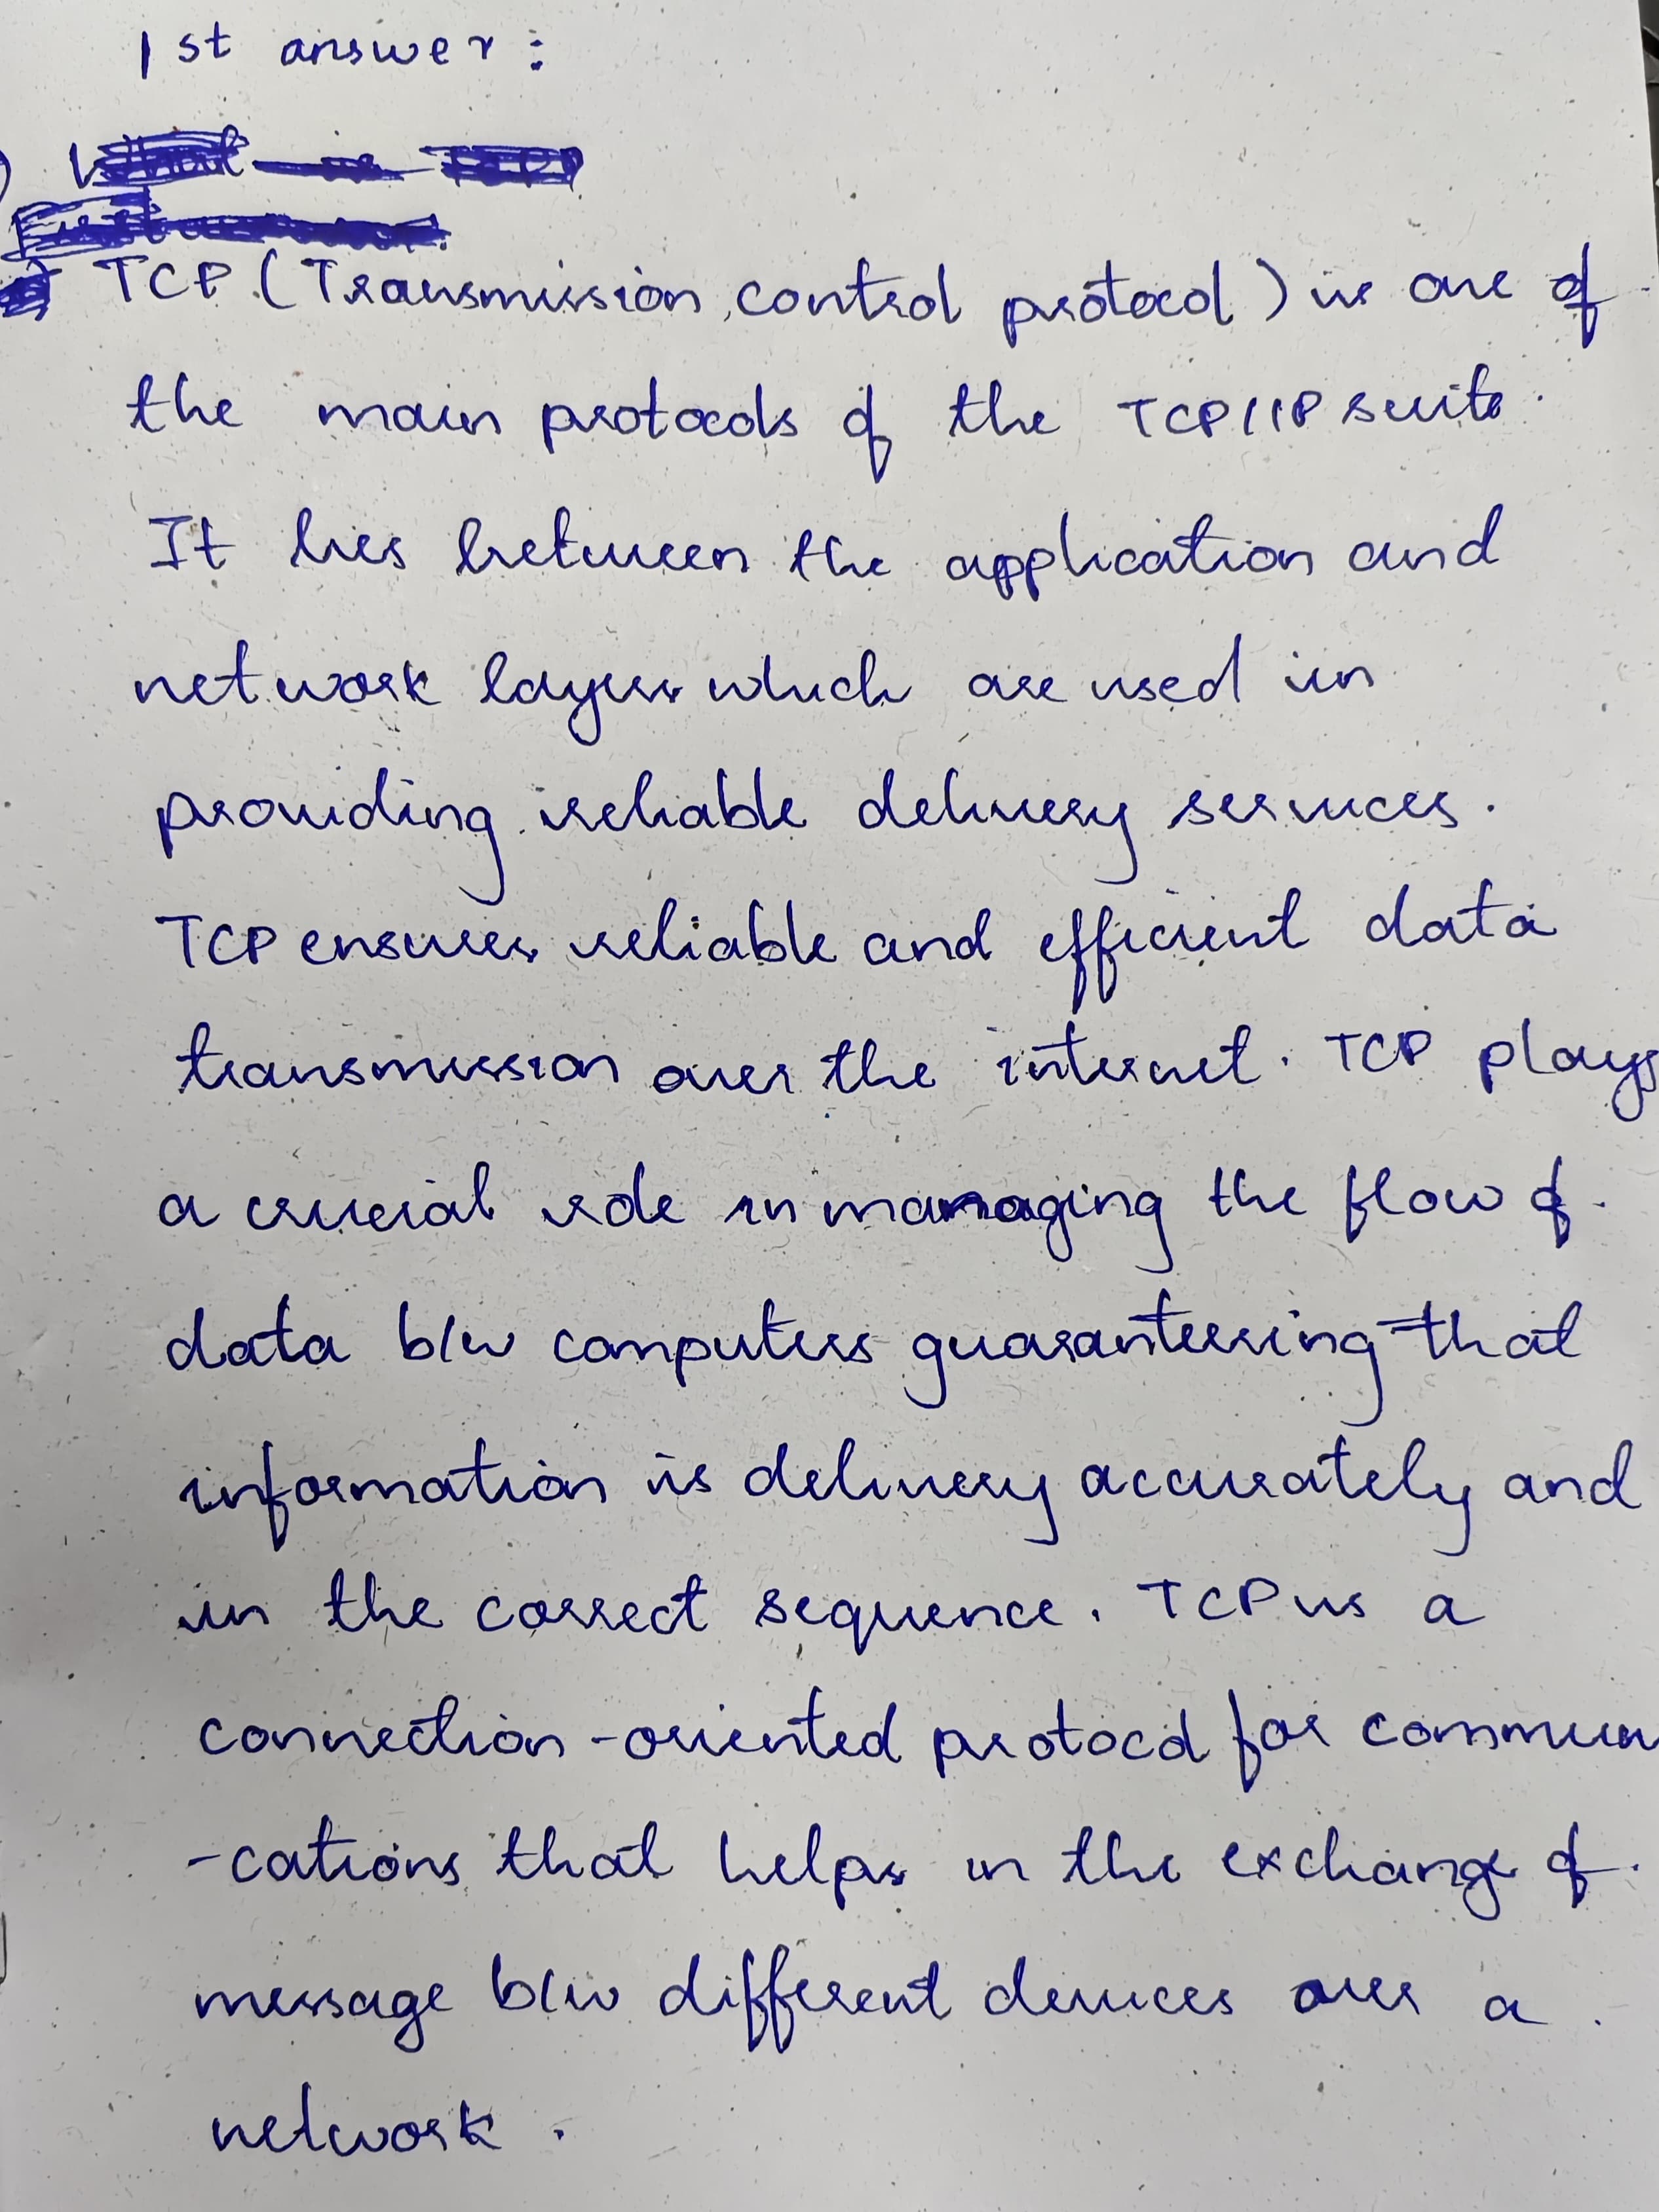 1st answer :
TCP (Transmission control protocol) is one of
the main protocols of the TCP/IP suite.
It lies between the application and
network layers which are used in
providing reliable delivery services.
TCP ensures reliable and efficient data
transmission over the internet. TCP plays
a crucial role in managing the flow of
data b/w computers guaranteering that
information is delivery accurately and
in the correct sequence. TCP is a
connection-oriented protocol for commun
-cations that helps in the exchange of
message b/w different devices over a
network.